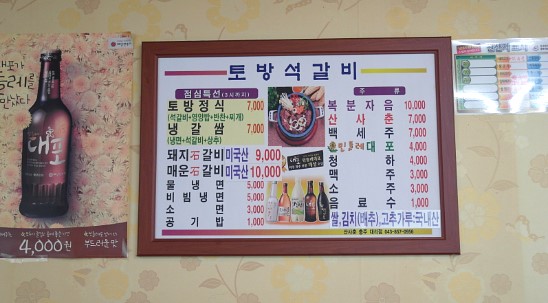 대포가
들레를
만났다
대포
4,000원
부드러운 맛
토방석갈비
점심특선(3시까지)
토방정식 7,000
(석갈비+영양밥+반찬+찌개)
냉갈쌈 7,000
(냉면+석갈비+상추)
돼지석갈비 미국산 9,000
매운석갈비 미국산 10,000
물냉면 5,000
비빔냉면 5,000
소면 3,000
공기밥 1,000
주류
복분자음 10,000
산사춘 7,000
백세주 7,000
민들레대포 4,000
청하 4,000
맥주 3,000
소주 3,000
음료수 1,000
쌀,김치(배추),고추가루:국내산